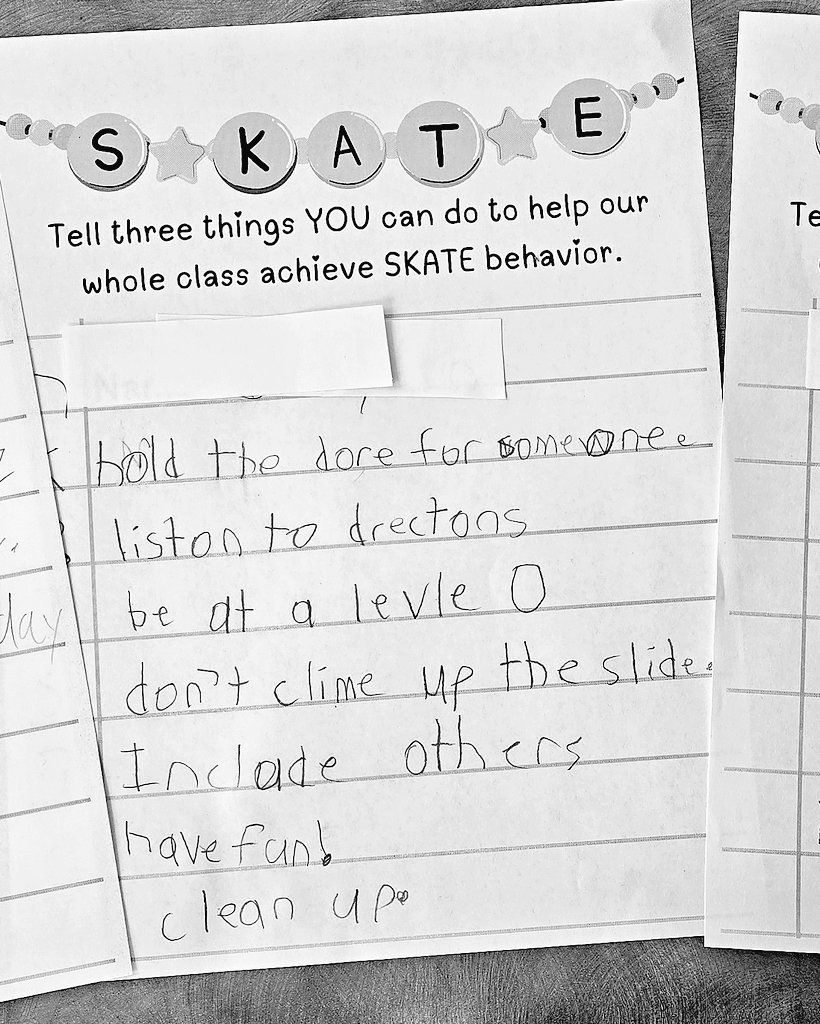 SKATE
Tell three things YOU can do to help our
whole class achieve SKATE behavior.
hold the dore for someone
liston to drectons
be at a levle 0
don't clime up the slide.
Include others
have fun!
clean up.
day
Te